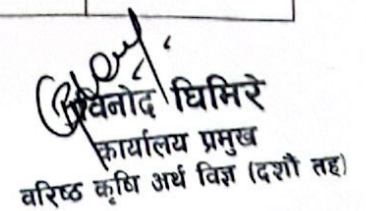 विनोद घिमिरे
कार्यालय प्रमुख
वरिष्ठ कृषि अर्थ विज्ञ (दशौ तह)